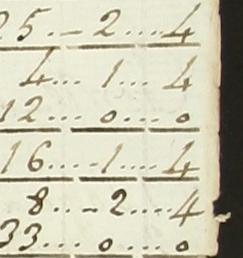 25...2....4
4... 1.... 4
12... 0.... 0
16....1....4
8...2....4
33... 0.... 0